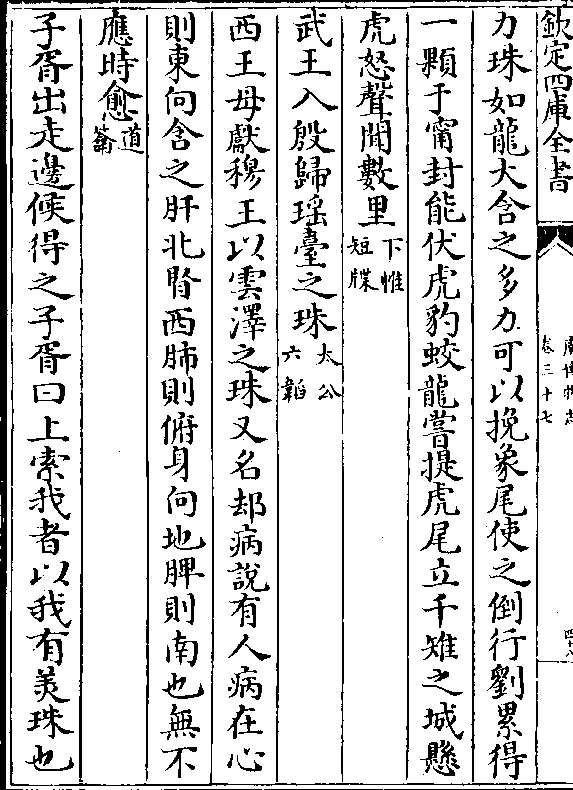 欽定四庫全書
廣博物志
卷三十七
四十八
力珠如龍大含之多力可以挽象尾使之倒行劉累得
一顆于甯封能伏虎豹蛟龍嘗提虎尾立千雉之城懸
虎怒聲聞數里下惟短牒
武王入殷歸瑶臺之珠太公六韜
西王母獻穆王以雲澤之珠又名却病説有人病在心
則東向含之肝北腎西肺則俯身向地脾則南也無不
應時愈道籥
子胥出走邊候得之子胥曰上索我者以我有美珠也